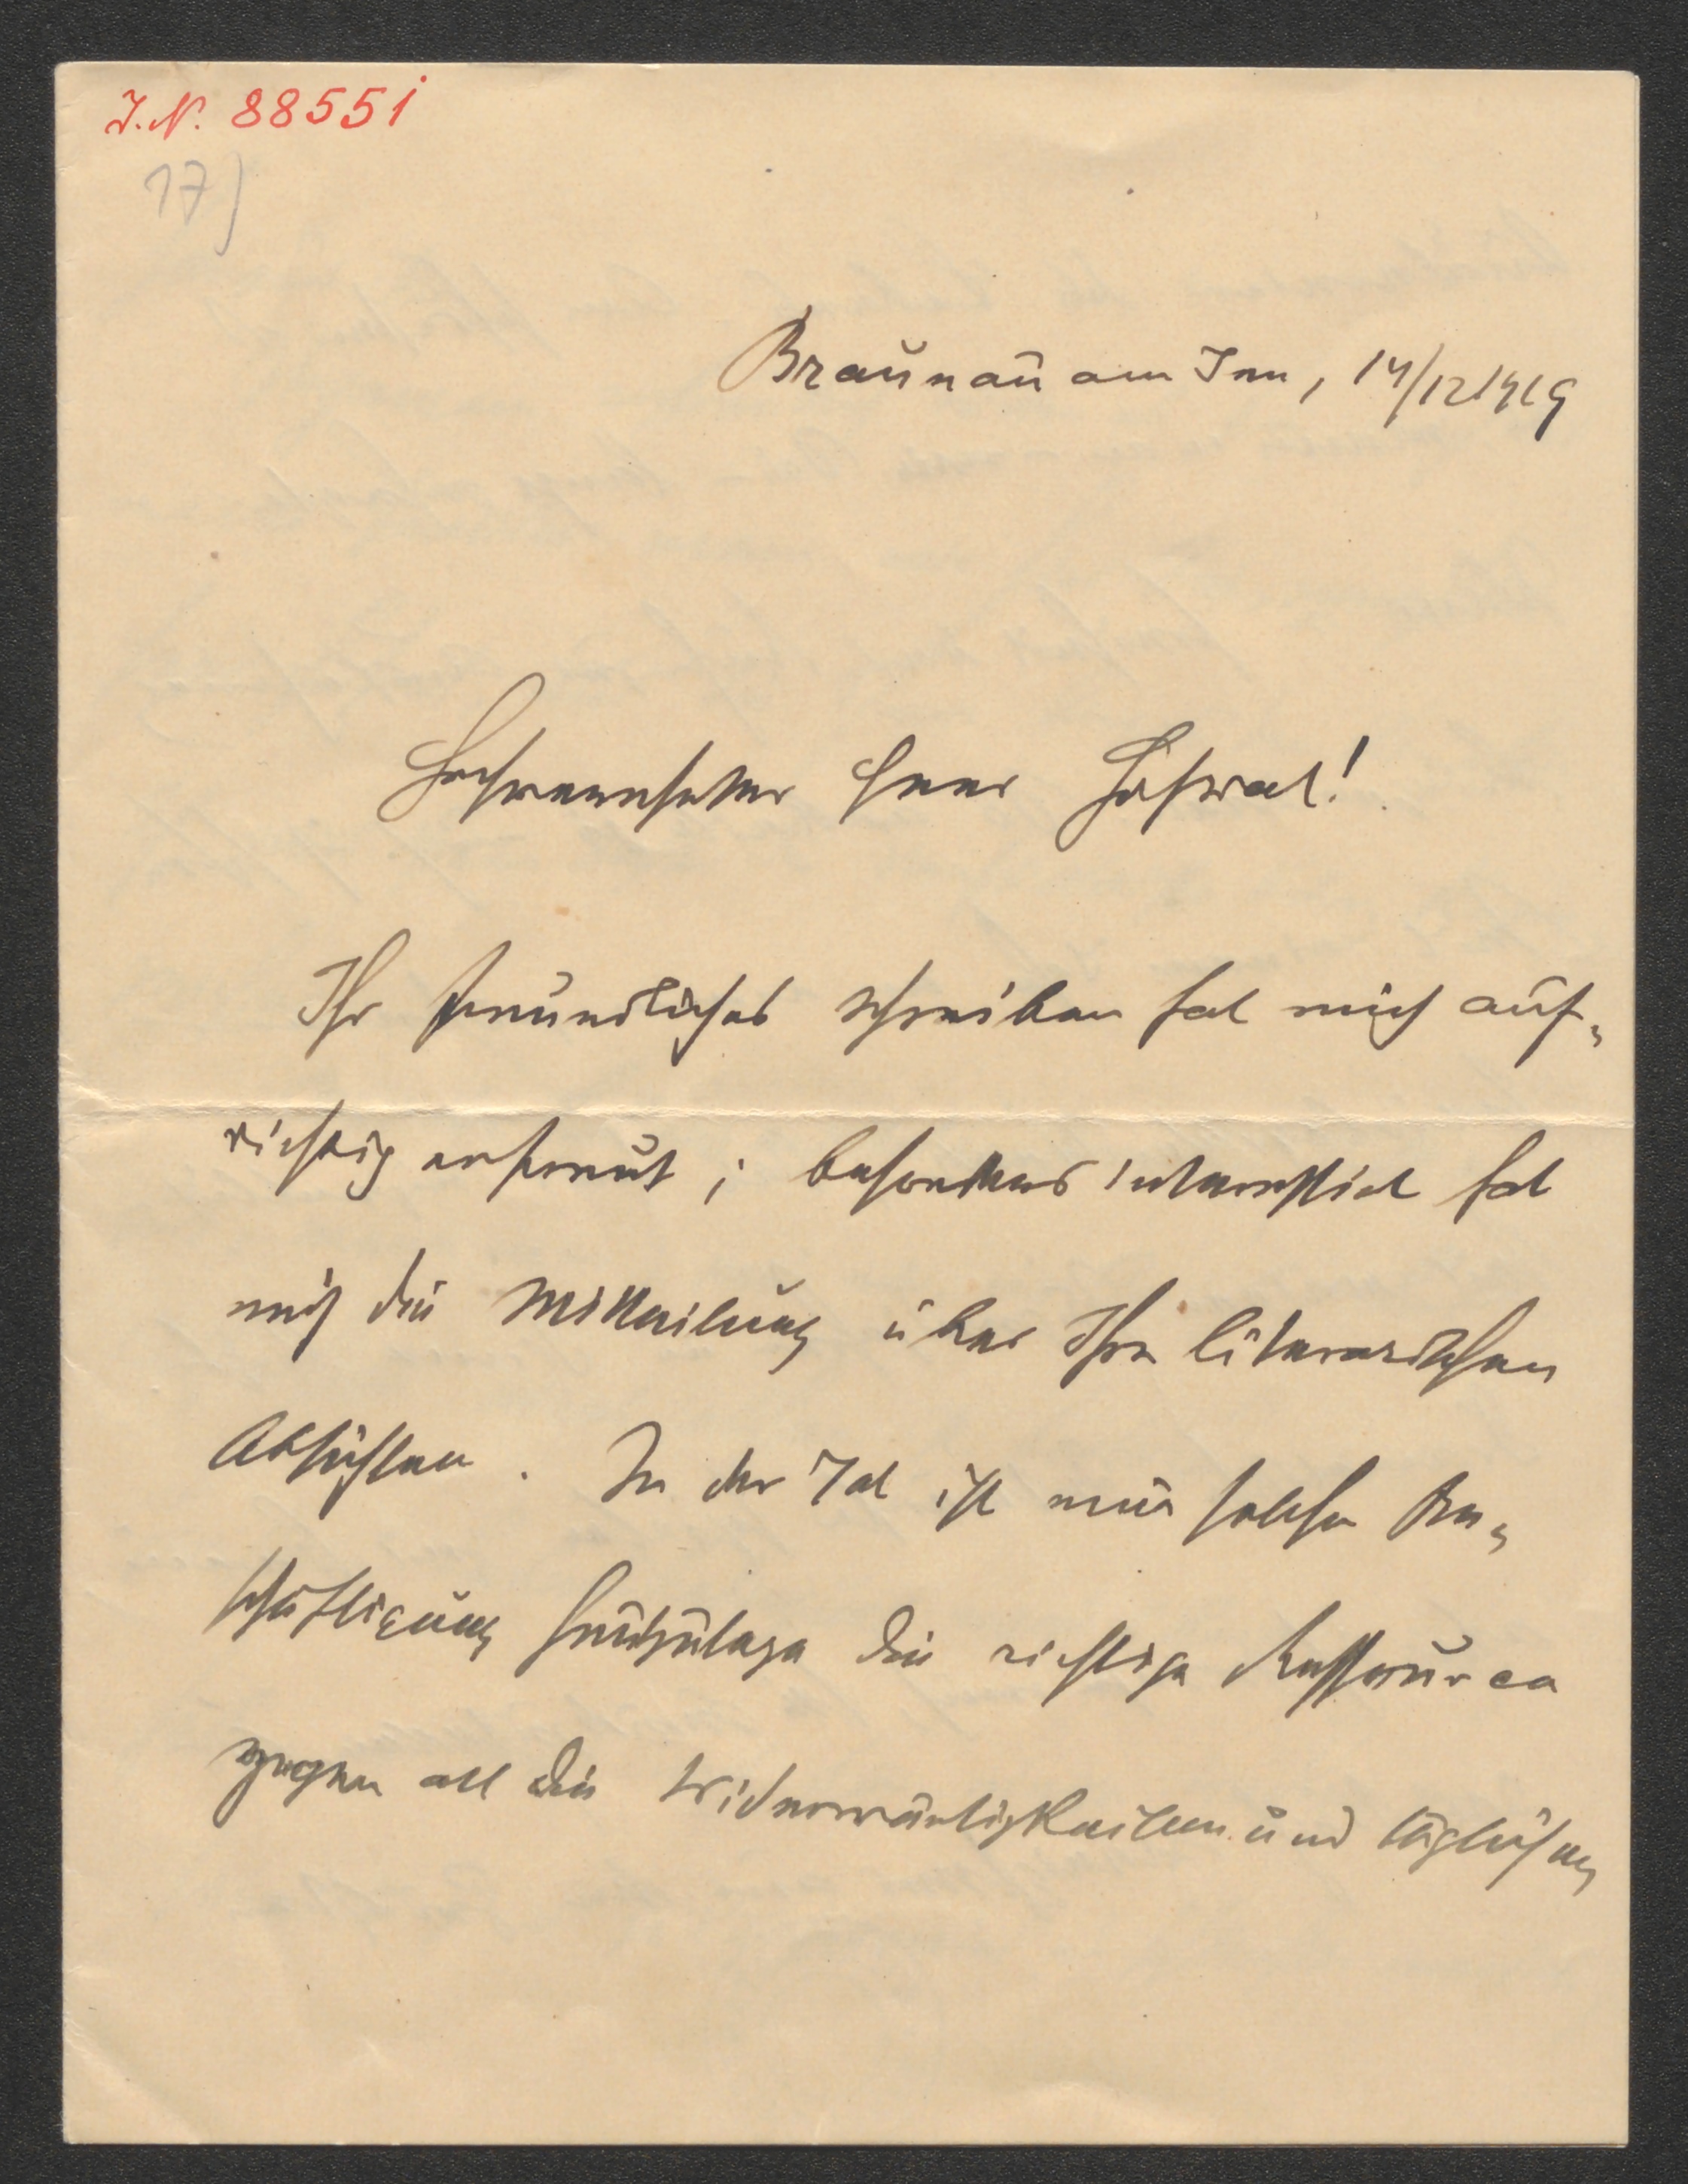 I.N. 88551
17)
Braunau am Inn, 14/12 1919
Hochverehrter Herr Hofrat!
Ihr freundliches Schreiben hat mich auf-
richtig erfreut; besonders interessiert hat
mich die Mitteilung über Ihre literarischen
Absichten. In der Tat ist eine solche Be-
schäftigung heutzutage die richtige Ressource
gegen all die Widerwärtigkeiten und täglichen